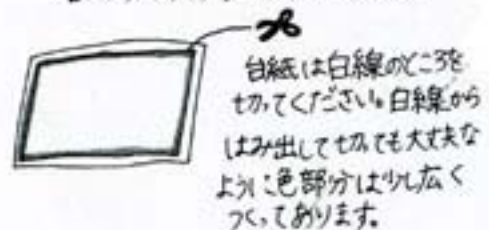 台紙は白線のところを
切ってください。白線から
はみ出して切れても大丈夫な
ように色部分は少し広く
つくってあります。